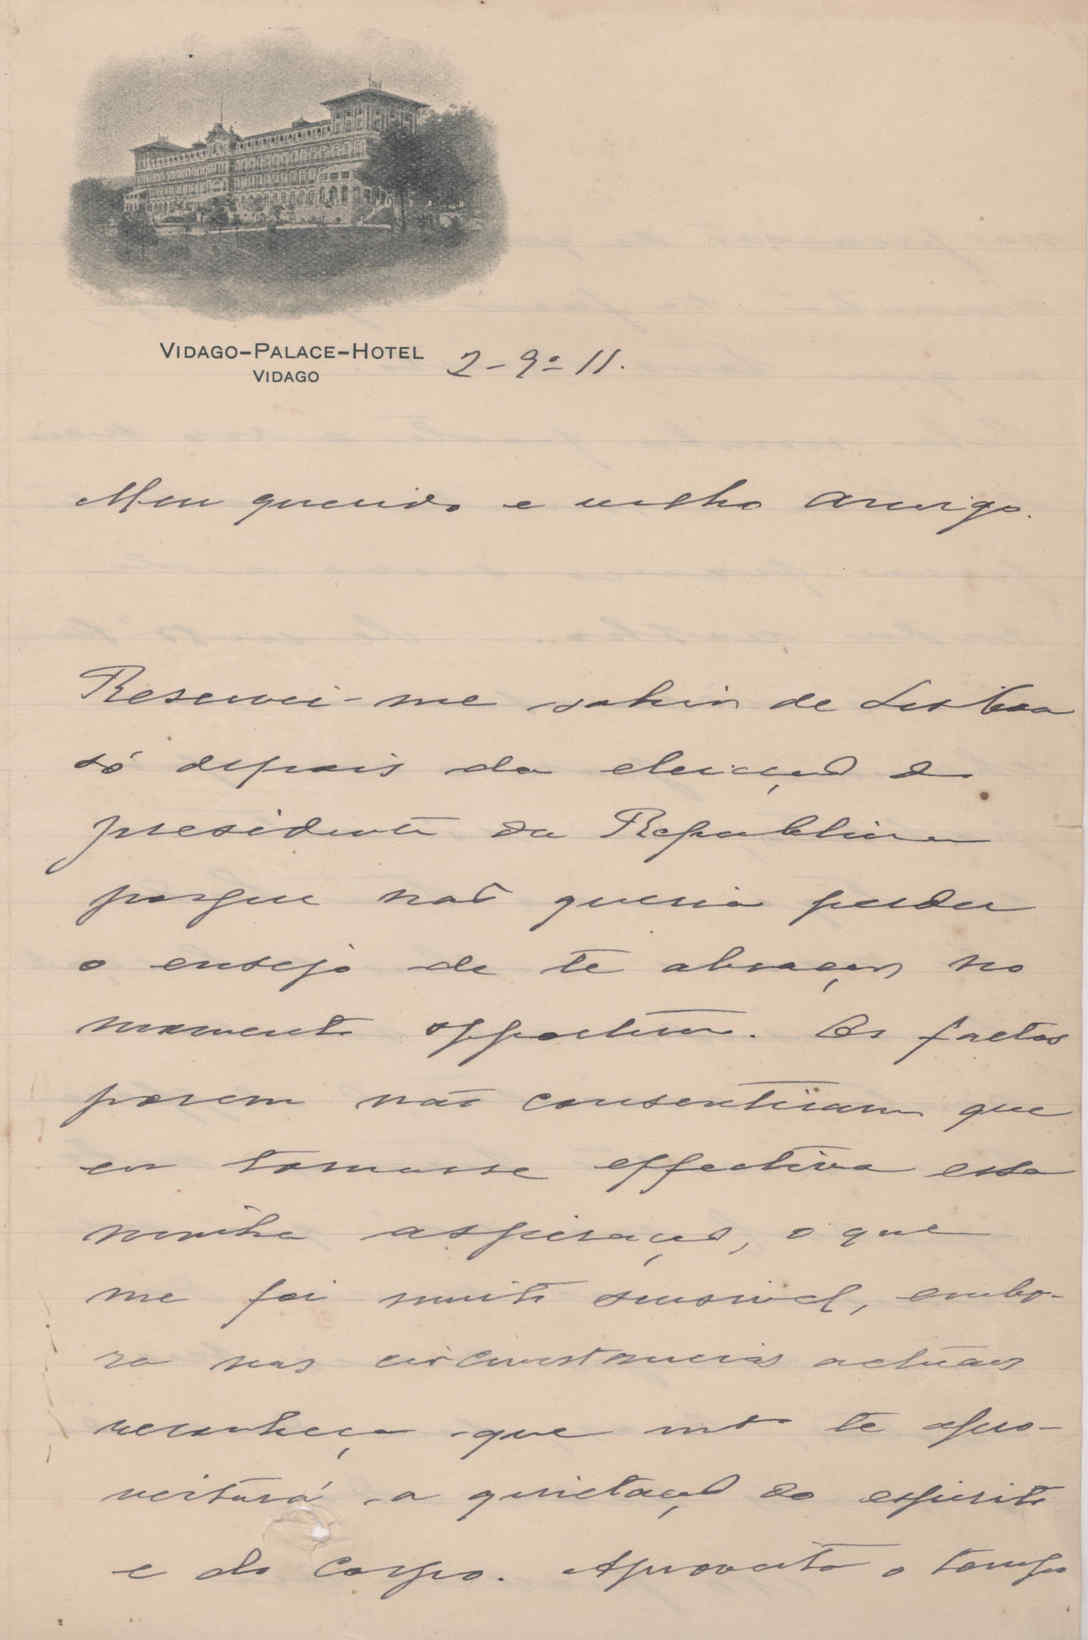 VIDAGO-PALACE-HOTEL
VIDAGO
2-9º-11.
Meu querido e velho amigo.
Reservei-me sahir de Lisboa
só depois da eleição do
presidente da Republica
porque não queria perder
o ensejo de te abraçar no
momento opportuno. Os factos
porem não consentiram que
eu tornasse effectiva essa
minha aspiração, o que
me foi muito sensivel, embo-
ra nas circumstancias actuaes
reconheça que mto te apro-
veitará a quietação do espirito
e do corpo. Aproveito o tempo